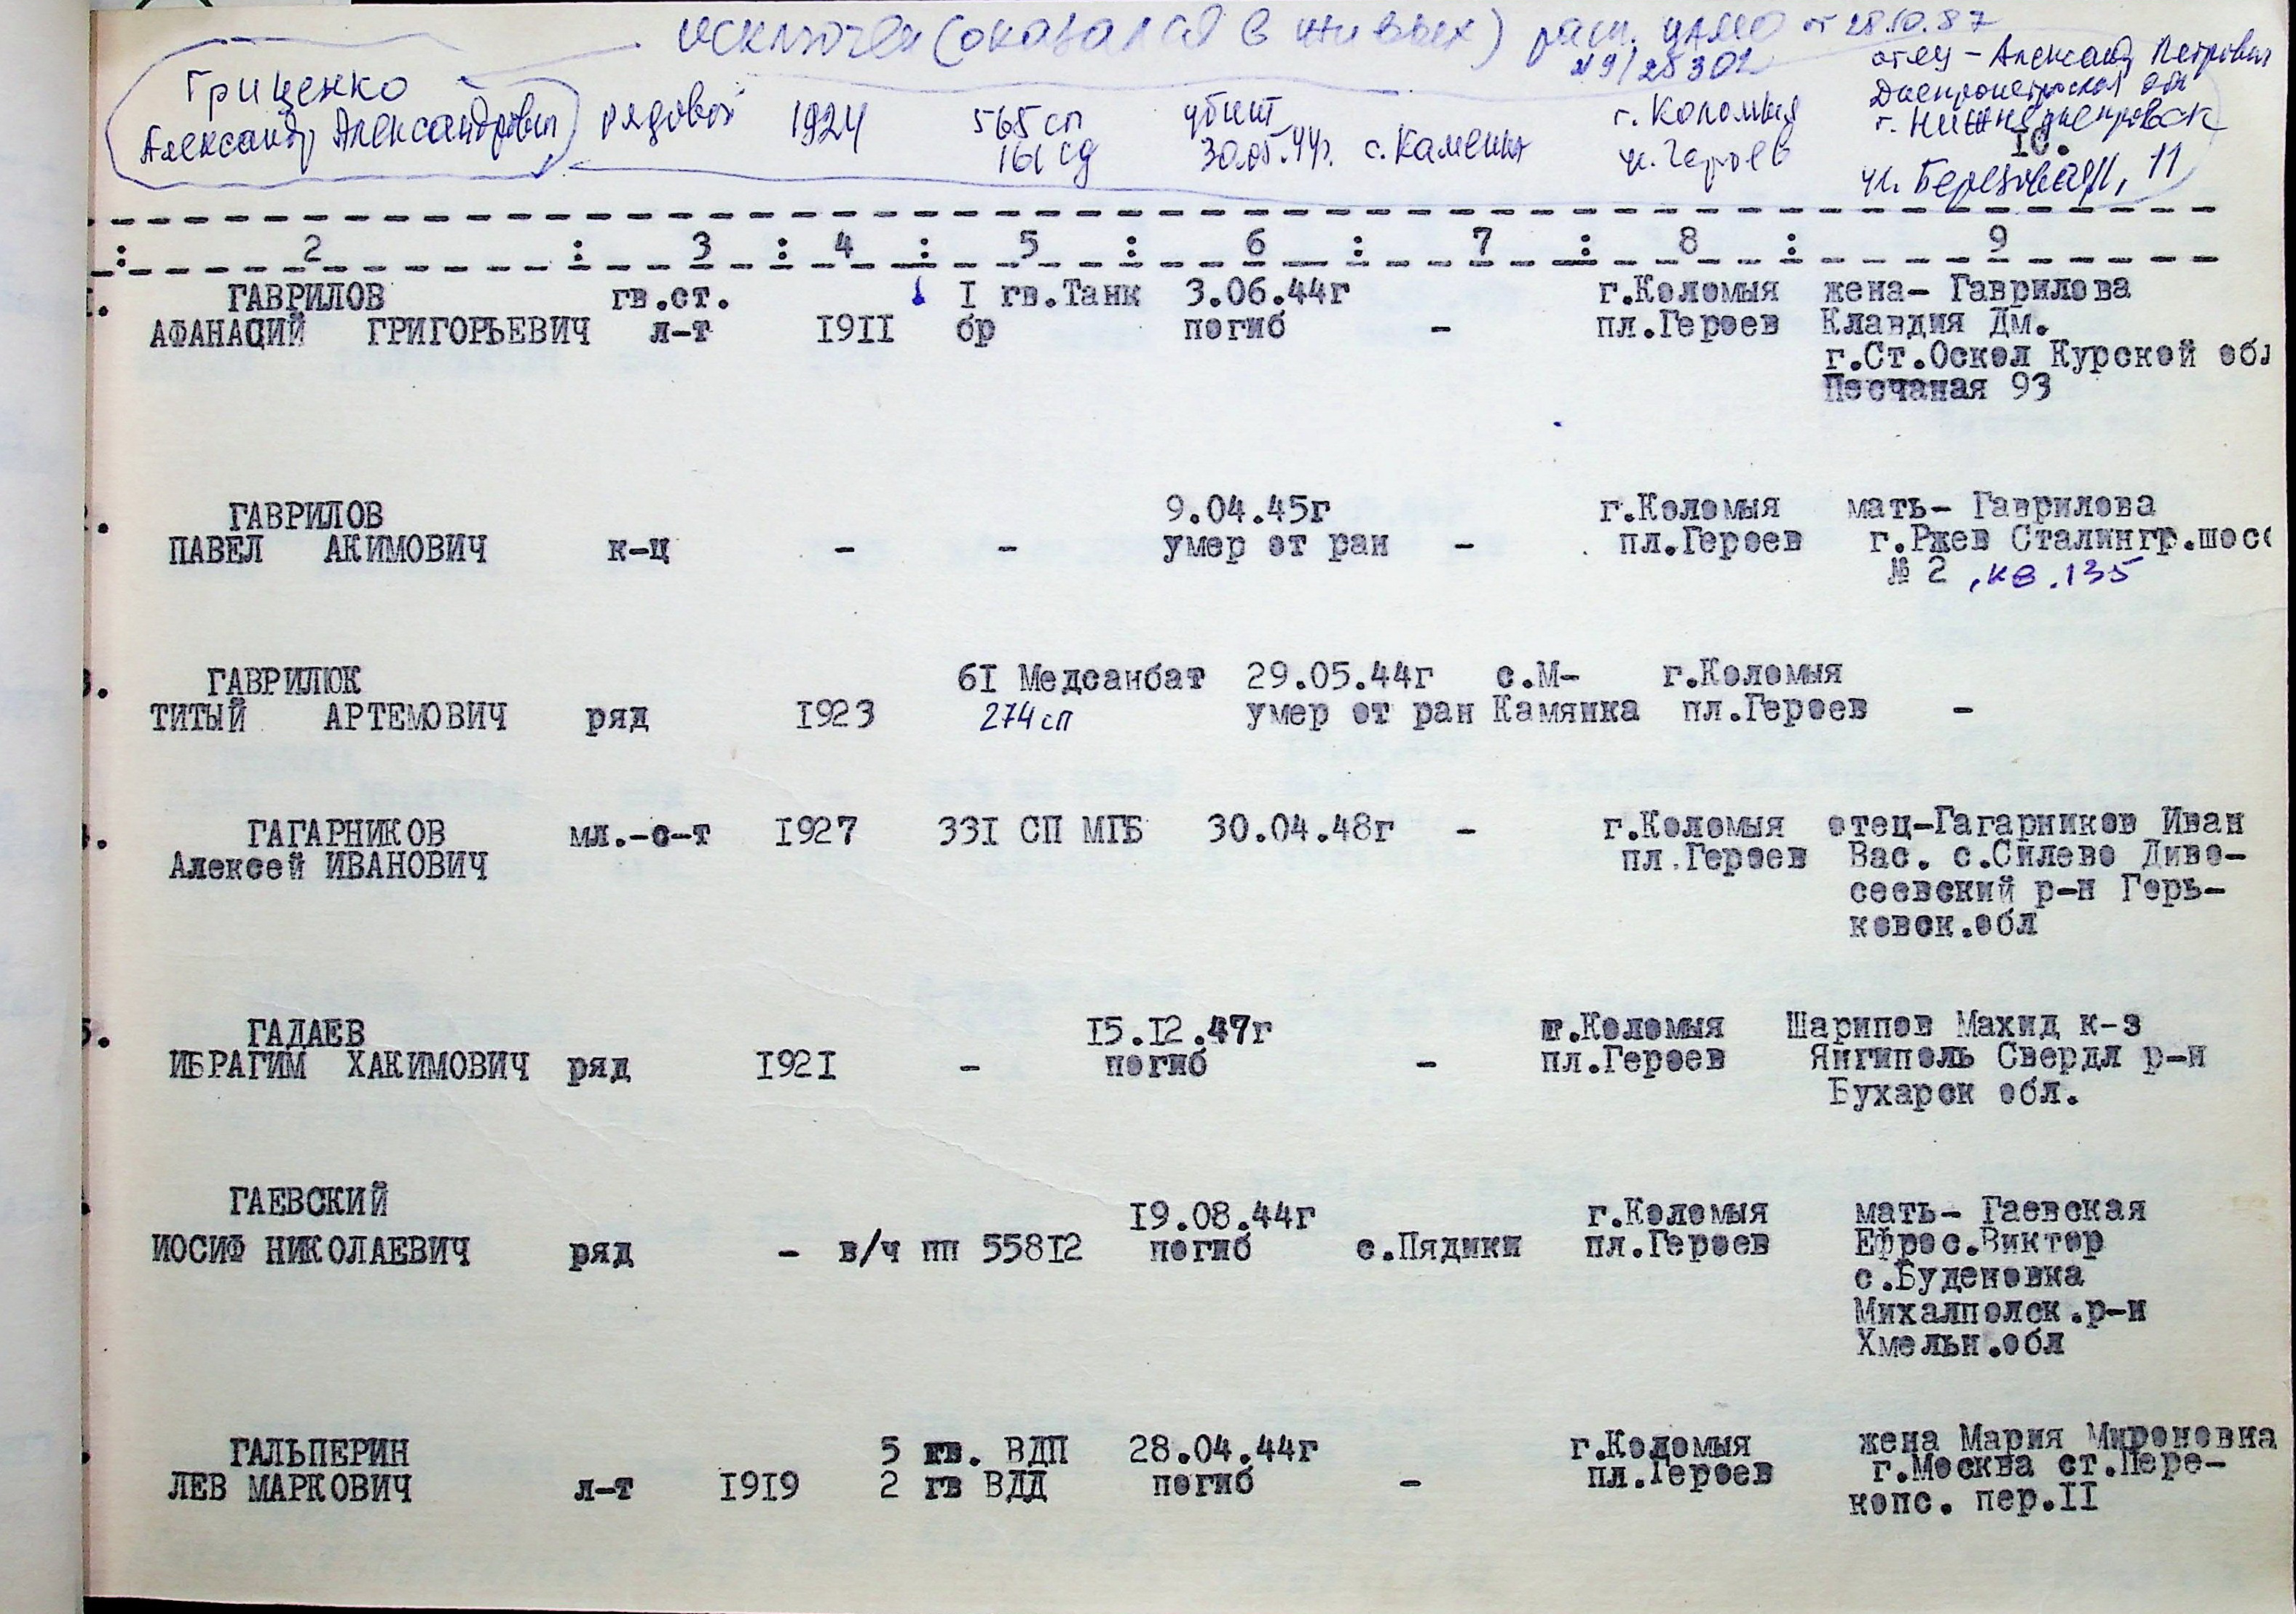 исключен (оказался в живых) расп. ЦАМО от 28.10.87
№ 9/28302
Гриценко
Александр Александрович рядовой 1924 565 сп убит г. Коломыя отец - Александр Петрович
161 сд 30.05.44г. с. Каменка Днепропетровская обл
г. Нижнеднепровск
10.
ул. Березовая, 11
: 2 : 3 : 4 : 5 : 6 : 7 : 8 : 9
1. ГАВРИЛОВ гв.ст. I гв.Танк 3.06.44г г.Коломыя жена- Гаврилова
АФАНАСИЙ ГРИГОРЬЕВИЧ л-т I9II бр погиб - пл.Героев Клавдия Дм.
г.Ст.Оскол Курской обл
Песчаная 93
2. ГАВРИЛОВ 9.04.45г г.Коломыя мать- Гаврилова
ПАВЕЛ АКИМОВИЧ к-ц - - умер от ран - пл.Героев г.Ржев Сталингр.шосс
№ 2 , кв. 135
3. ГАВРИЛЮК 6I Медсанбат 29.05.44г с.М- г.Коломыя
ТИТЫЙ АРТЕМОВИЧ ряд I923 274 сп умер от ран Камянка пл.Героев -
4. ГАГАРНИКОВ мл.-с-т I927 33I СП МГБ 30.04.48г - г.Коломыя отец-Гагарников Иван
Алексей ИВАНОВИЧ пл.Героев Вас. с.Силево Диве-
сеевский р-н Горь-
ковск.обл
5. ГАДАЕВ I5.I2.47г г.Коломыя Шарипов Махид к-з
ИБРАГИМ ХАКИМОВИЧ ряд I92I - погиб - пл.Героев Янгиполь Свердл р-н
Бухарск обл.
ГАЕВСКИЙ I9.08.44г г.Коломыя мать- Гаевская
ИОСИФ НИКОЛАЕВИЧ ряд - в/ч пп 558I2 погиб с.Пядики пл.Героев Ефрос.Виктор
с.Буденовка
Михалполск.р-н
Хмельн.обл
ГАЛЬПЕРИН 5 гв. ВДП 28.04.44г г.Коломыя жена Мария Мироновна
ЛЕВ МАРКОВИЧ л-т I9I9 2 гв ВДД погиб - пл.Героев г.Москва ст.Пере-
копс. пер.II